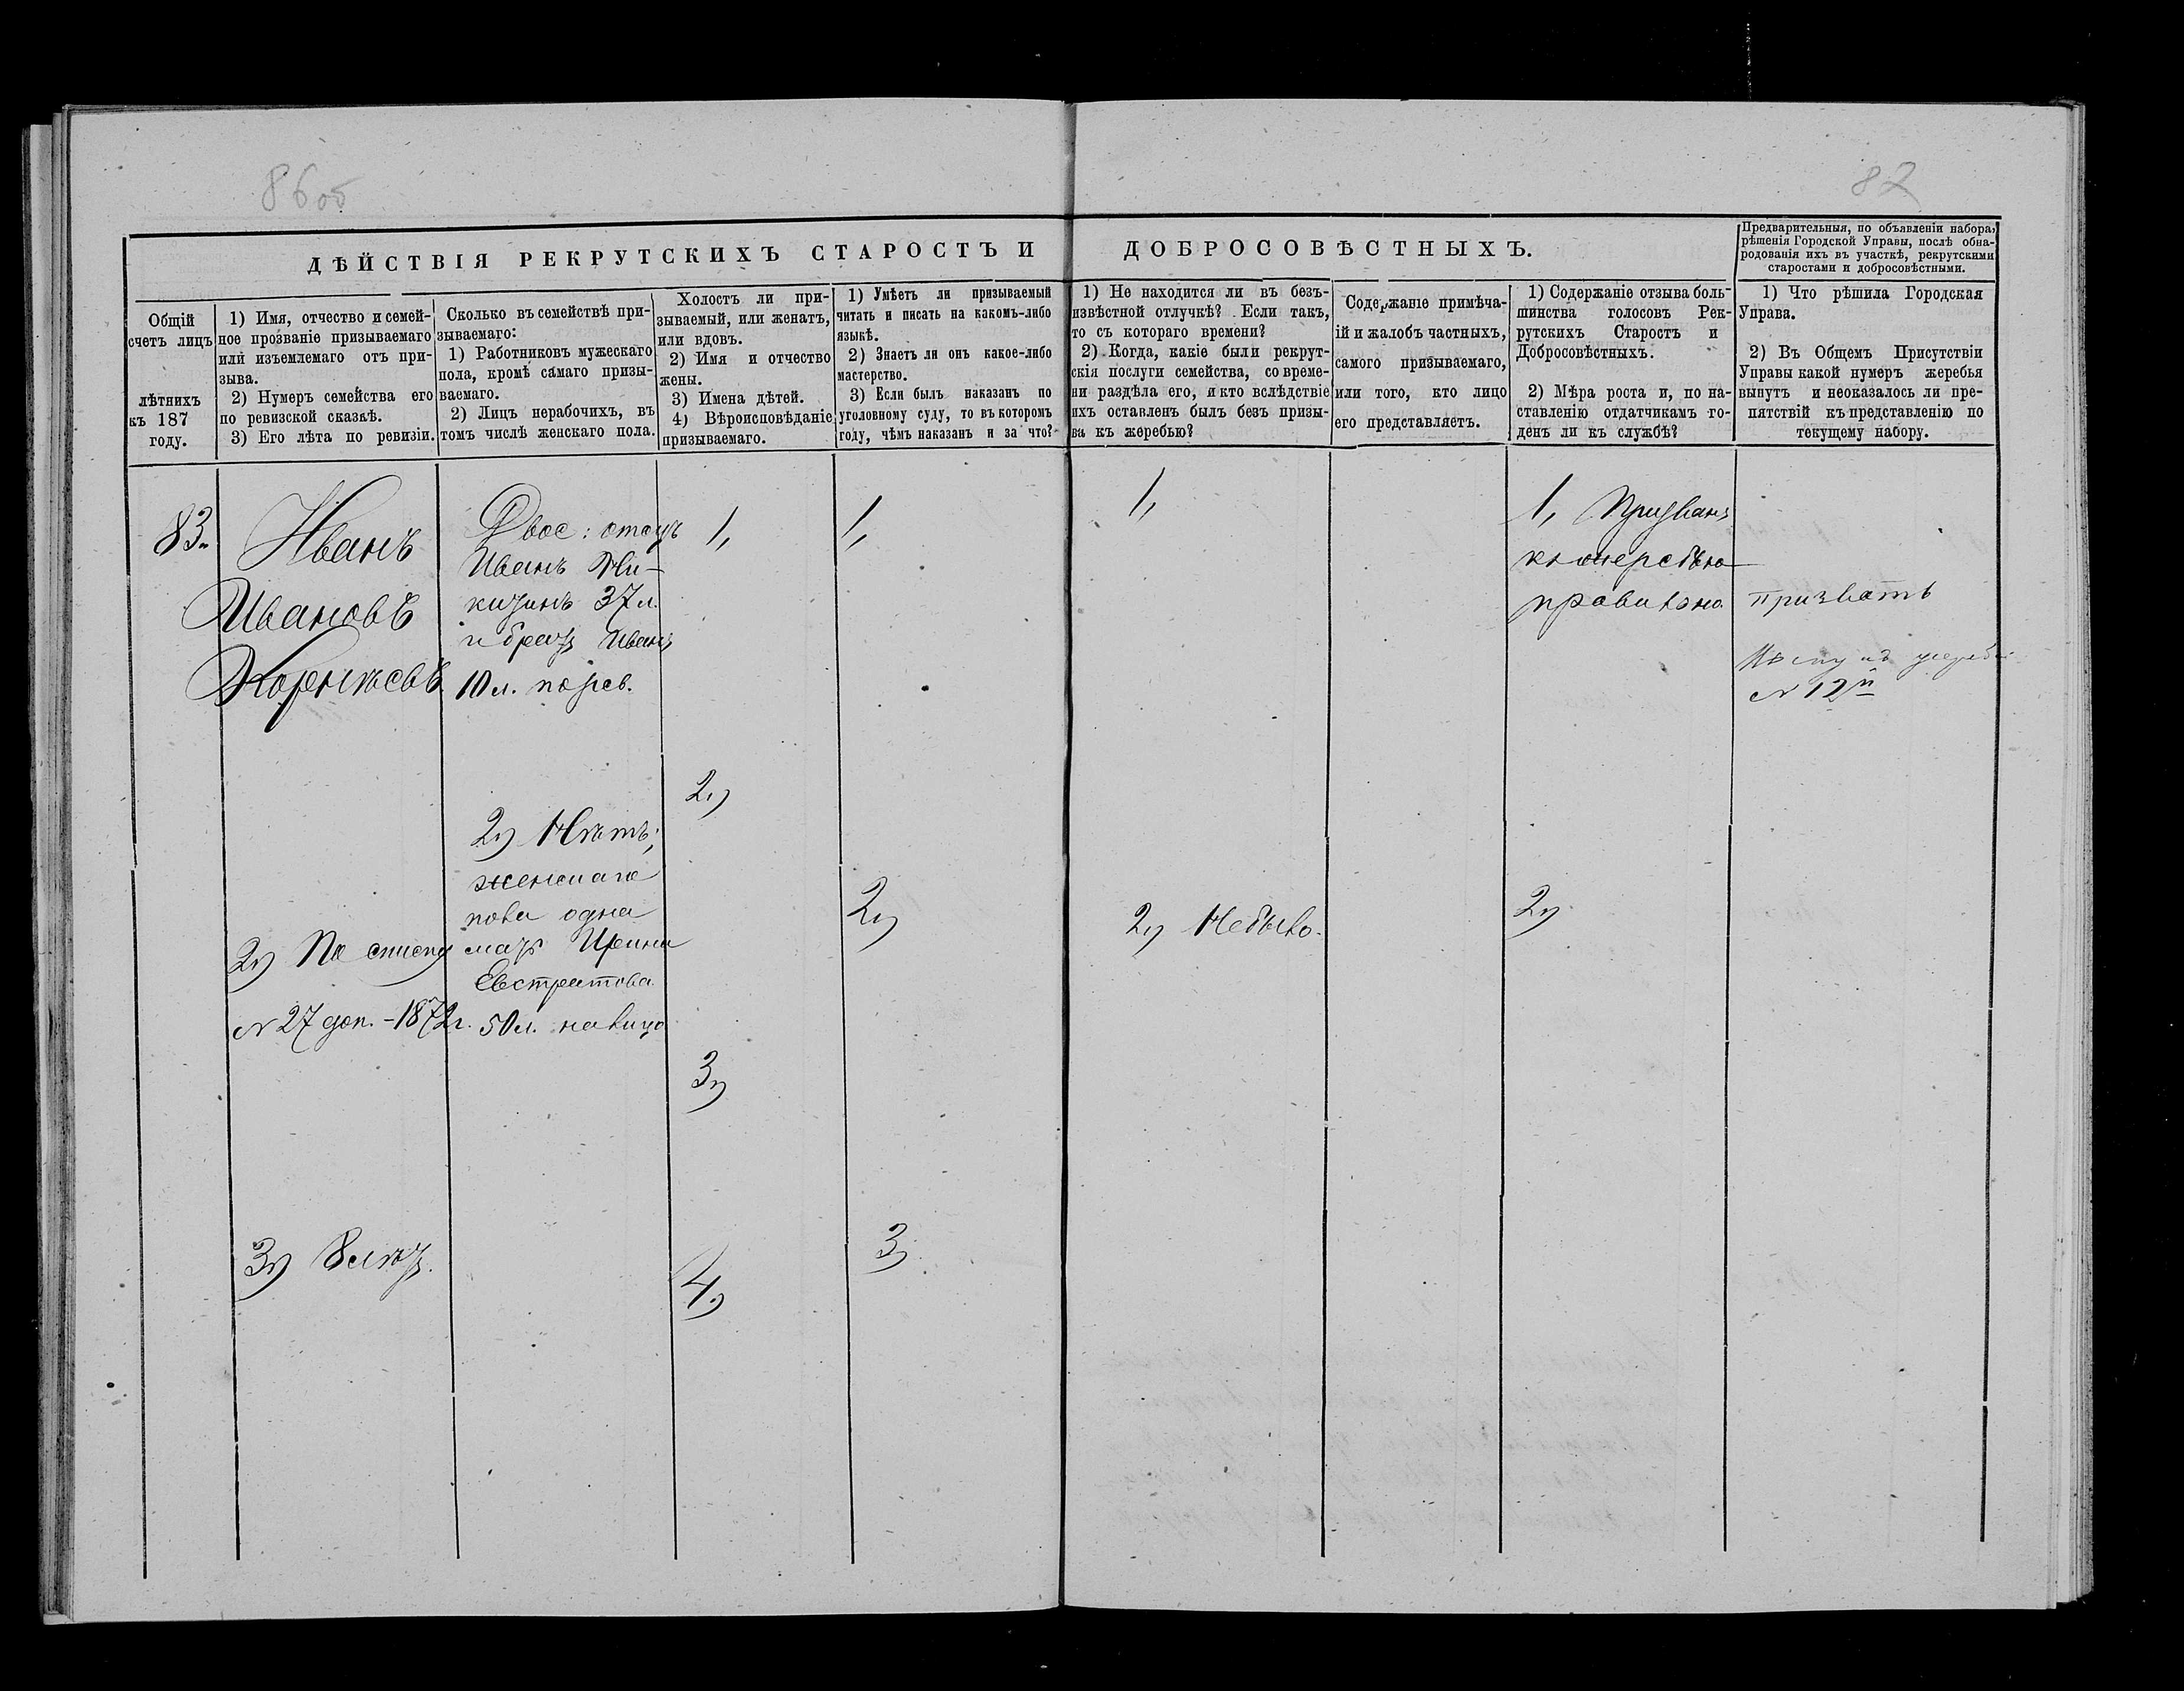 86об
82
ДѢЙСТВІЯ РЕКРУТСКИХЪ СТАРОСТЪ И ДОБРОСОВѢСТНЫХЪ.
Предварительныя, по объявленіи набора,
рѣшенія Городской Управы, послѣ обна-
родованія ихъ въ участкѣ, рекрутскими
старостами и добросовѣстными.
Общій
счетъ лицъ
лѣтнихъ
къ 187
году.
1) Имя, отчество и семей-
ное прозваніе призываемаго
или изъемлемаго отъ при-
зыва.
2) Нумеръ семейства его
по ревизской сказкѣ.
3) Его лѣта по ревизіи.
Сколько въ семействѣ при-
зываемаго:
1) Работниковъ мужескаго
пола, кромѣ самаго призы-
ваемаго.
2) Лицъ нерабочихъ, въ
томъ числѣ женскаго пола.
Холостъ ли при-
зываемый, или женатъ,
или вдовъ.
2) Имя и отчество
жены.
3) Имена дѣтей.
4) Вѣроисповѣданіе
призываемаго.
1) Умѣетъ ли призываемый
читать и писать на какомъ-либо
языкѣ.
2) Знаетъ ли онъ какое-либо
мастерство.
3) Если былъ наказанъ по
уголовному суду, то въ которомъ
году, чѣмъ наказанъ и за что?
1) Не находится ли въ безъ-
извѣстной отлучкѣ? Если такъ,
то съ котораго времени?
2) Когда, какіе были рекрут-
скія послуги семейства, со време-
ни раздѣла его, и кто вслѣдствіе
ихъ оставленъ былъ безъ призы-
ва къ жеребью?
Содержаніе примѣча-
ій и жалобъ частныхъ,
самого призываемаго,
или того, кто лицо
его представляетъ.
1) Содержаніе отзыва боль-
шинства голосовъ Рек-
рутскихъ Старостъ и
Добросовѣстныхъ.
2) Мѣра роста и, по на-
ставленію отдатчикамъ го-
денъ ли къ службѣ?
1) Что рѣшила Городская
Управа.
2) Въ Общемъ Присутствіи
Управы какой нумеръ жеребья
вынутъ и неоказалось ли пре-
пятствій къ представленію по
текущему набору.
83.
Иванъ
Ивановъ
2) По списку
№ 27 доп. - 1872 г.
3) 8 лѣтъ.
Двое: отецъ
Иванъ Ни-
37 л.
и братъ Иванъ
10 л. по рев.
2) Нѣтъ;
женскаго
пола одна
мать Ирина
Евстратова
50 л. на лицо
1,
2,)
3)
4,)
1,
2,)
3)
1,
2,) Небыло.
1, Призванъ
къ жеребью
правильно
2)
Призвать
№ 12й